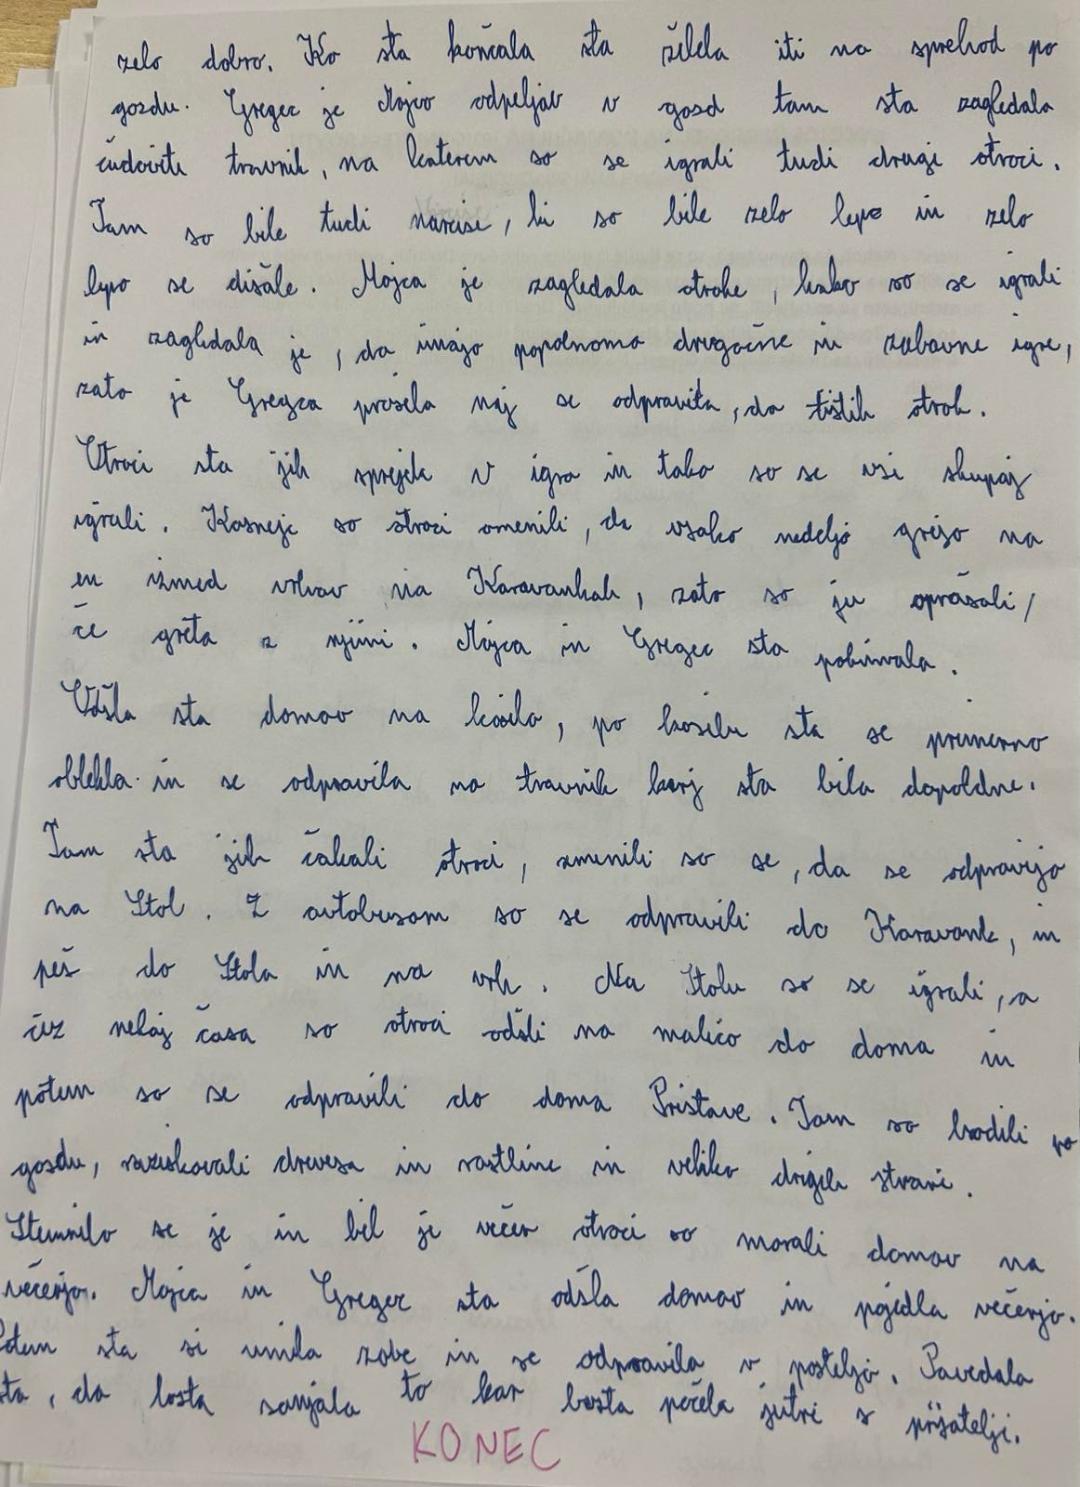 zelo dobro. Ko sta končala sta želela iti na sprehod po
gozdu. Gregec je Mojco odpeljav v gozd tam sta zagledala
čudoviti travnik, na katerem so se igrali tudi drugi otroci.
Tam so bile tudi narcise, ki so bile zelo lepe in zelo
lepo se dišale. Mojca je zagledala otroke, kako so se igrali
in zagledala je, da imajo popolnoma drugačne in zabavne igre,
zato je Gregca prosila naj se odpravita, do tistih otrok.
Otroci sta jih sprejele v igro in tako so se vsi skupaj
igrali. Kasneje so otroci omenili, da vsako nedeljo grejo na
en izmed vrhov na Karavankah, zato so ju oprašali,
če greta z njimi. Mojca in Gregec sta pokimala.
Odšla sta domov na kosilo, po kosilu sta se primerno
oblekla in se odpravila na travnik kjer sta bila dopoldne.
Tam sta jih čakali otroci, zmenili so se, da se odpravijo
na Stol. Z avtobusom so se odpravili do Karavank, in
peš do Stola in na vrh. Na Stolu so se igrali, a
čez nekaj časa so otroci odšli na malico do doma in
potem so se odpravili do doma Pristave. Tam so hodili po
gozdu, raziskovali drevesa in rastline in veliko drugih stvari.
Stemnilo se je in bil je večer otroci so morali domov na
večerjo. Mojca in Gregec sta odšla domov in pojedla večerjo.
Potem sta si umila zobe in se odpravila v posteljo. Povedala
sta, da bosta sanjala to kar bosta počela jutri s prijatelji.
KONEC